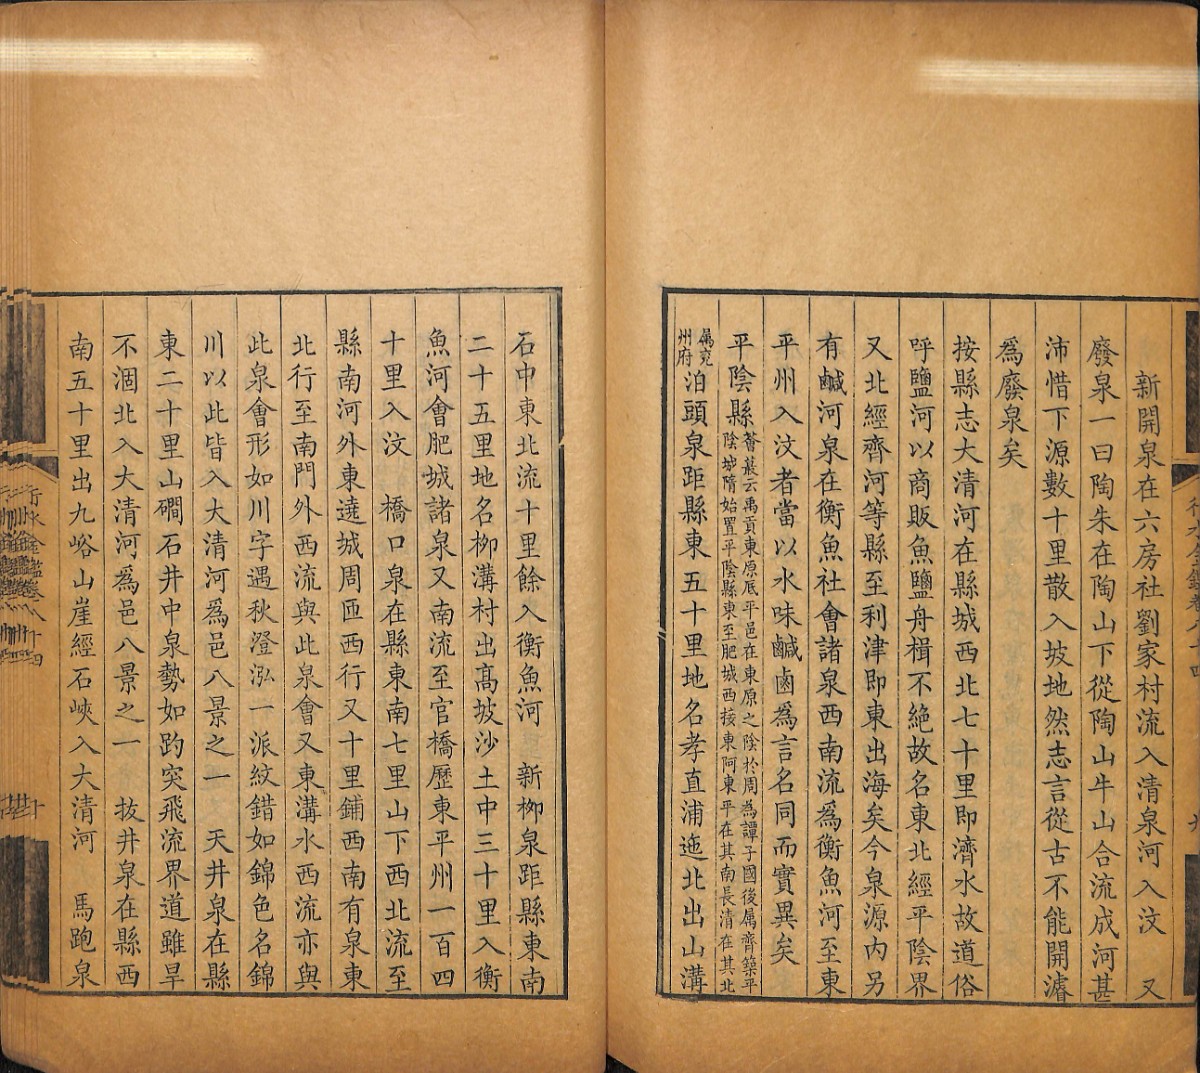 新開泉在六房社劉家村流入清泉河入汶　又
廢泉一曰陶朱在陶山下從陶山牛山合流成河甚
沛惜下源數十里散入坡地然志言從古不能開濬
爲廢泉矣
按縣志大清河在縣城西北七十里即濟水故道俗
呼鹽河以商販魚鹽舟楫不絶故名東北經平陰界
又北經齊河等縣至利津即東出海矣今泉源内另
有鹹河泉在衡魚社會諸泉西南流爲衡魚河至東
平州入汶者當以水味鹹鹵爲言名同而實異矣
平陰縣薈蕞云禹貢東原厎平邑在東原之陰於周為譚子國後属齊築平
陰城隋始置平陰縣東至肥城西接東阿東平在其南長清在其北
属兖
州府泊頭泉距縣東五十里地名孝直浦迤北出山溝
石中東北流十里餘入衡魚河　新柳泉距縣東南
二十五里地名柳溝村出高坡沙土中三十里入衡
魚河會肥城諸泉又南流至官橋歷東平州一百四
十里入汶　橋口泉在縣東南七里山下西北流至
縣南河外東遶城周匝西行又十里鋪西南有泉東
北行至南門外西流與此泉會又東溝水西流亦與
此泉會形如川字遇秋澄泓一派紋錯如錦色名錦
川以此皆入大清河爲邑八景之一　天井泉在縣
東二十里山磵石井中泉勢如趵突飛流界道雖旱
不涸北入大清河爲邑八景之一　拔井泉在縣西
南五十里出九峪山崖經石峽入大清河　馬跑泉